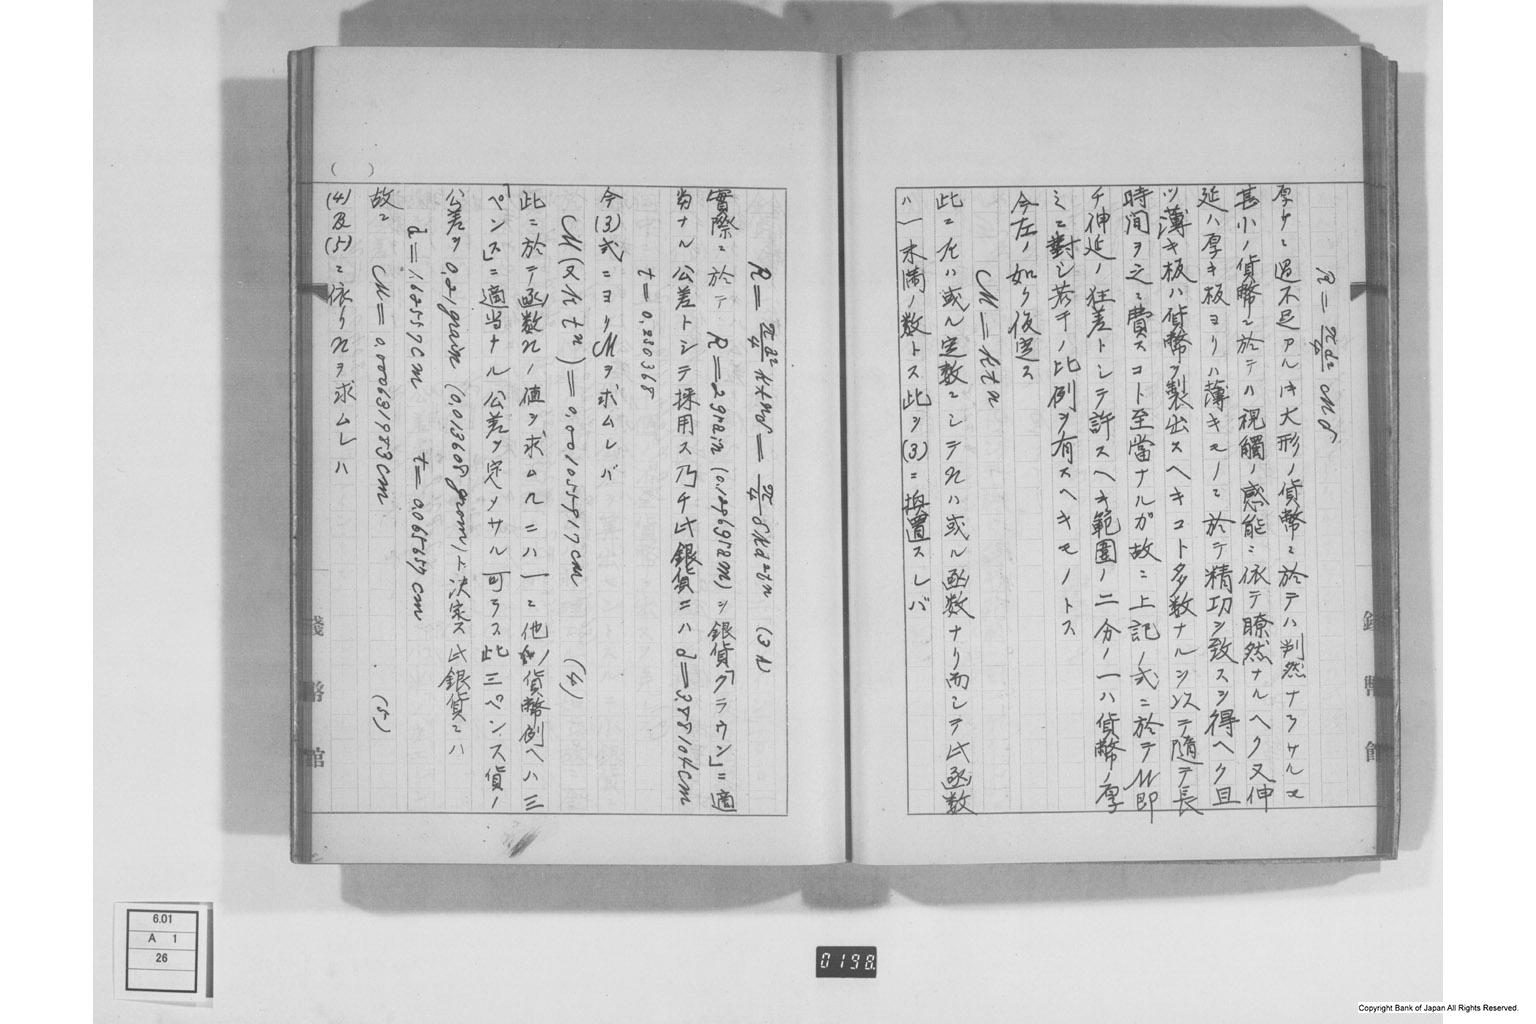 R = π d²/4 M δ
厚サニ過不足アルモ大形ノ貨幣ニ於テハ判然ナラサルモ
甚小ノ貨幣ニ於テハ視觸ノ感能ニ依テ瞭然ナルヘク又伸
延ハ厚キ板ヨリハ薄キモノニ於テ精功ヲ致スヲ得ヘク且
ツ薄キ板ハ貨幣ヲ製出スヘキコト多数ナルヲ以テ隨テ長
時間ヲ之ニ費スコト至當ナルガ故ニ上記ノ式ニ於テM即
チ伸延ノ狂差トシテ許スヘキ範圍ノ二分ノ一ハ貨幣ノ厚
ミニ對シ若干ノ比例ヲ有スヘキモノトス
今左ノ如ク仮定ス
M = k t n
此ニ k ハ或ル定数ニシテ n ハ或ル函数ナリ而シテ此函数
ハ一未満ノ数トス此ヲ(3)ニ換置スレバ
R = π d²/4 k t n δ = π/4 δ k d² t n (3A)
實際ニ於テ R = 2 grain (0.1296 gram) ヲ銀貨「クラウン」ニ適
当ナル公差トシテ採用ス乃チ此銀貨ニハ d = 3.88104 cm
t = 0,230368
今(3)式ニヨリMヲ求ムレバ
M (又 k t n) = 0,001055817 cm (4)
此ニ於テ函数nノ値ヲ求ムルニハ一ニ他ノ貨幣例ヘハ三
「ペンス」ニ適当ナル公差ヲ定メサル可ラス此三ペンス貨ノ
公差ヲ 0,21 grain (0,013608 gram) ト决定ス此銀貨ニハ
d = 1.62557 cm t = 0.065657 cm
故ニ M = 0,000631983 cm (5)
(4)及(5)ニ依リnヲ求ムレハ
( )
錢幣館
錢幣館
6.01
A 1
26
0198
Copyright Bank of Japan All Rights Reserved.